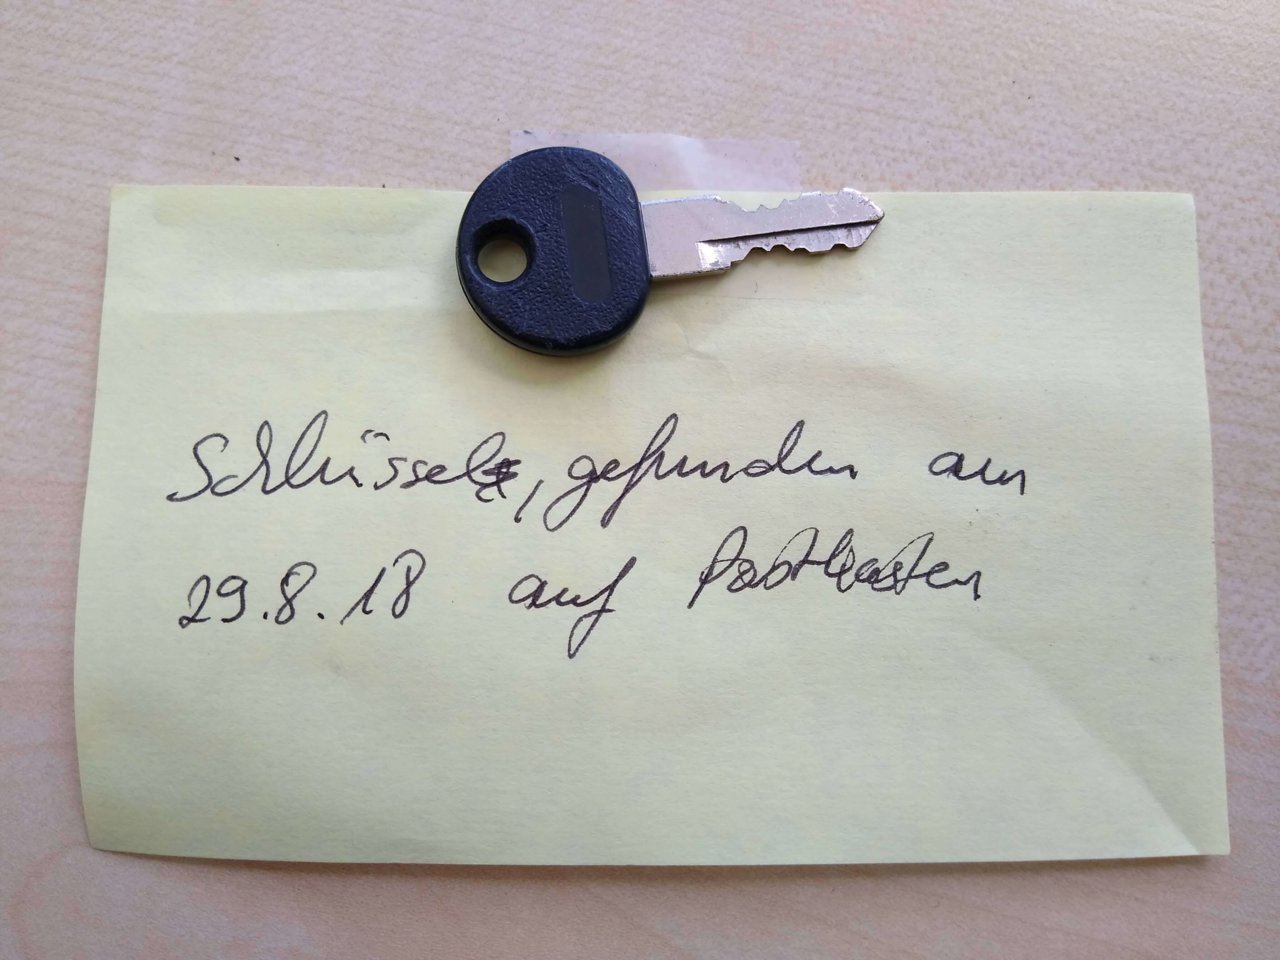 Schlüssel, gefunden am
29.8.18 auf Postkasten